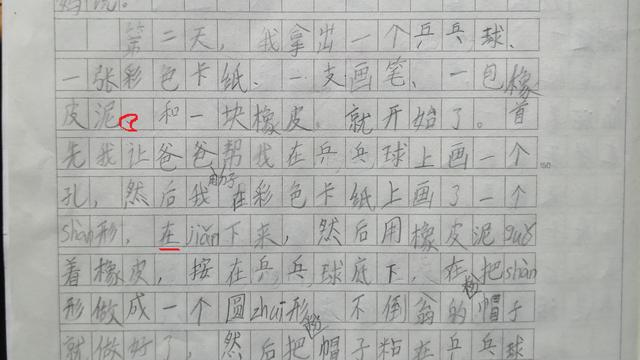 第二天，我拿出一个乒乓球、
一张彩色卡纸、一支画笔、一包橡
皮泥、和一块橡皮。就开始了。首
先我让爸爸帮我在乒乓球上画一个
孔，然后我用力于在彩色卡纸上画了一个
shàn形，在jiǎn下来，然后用橡皮泥guǒ
着橡皮，按在乒乓球底下，在把shàn
形做成一个圆zhuī形，不倒翁的帽子
就做好了，然后把帽子粘在乒乓球